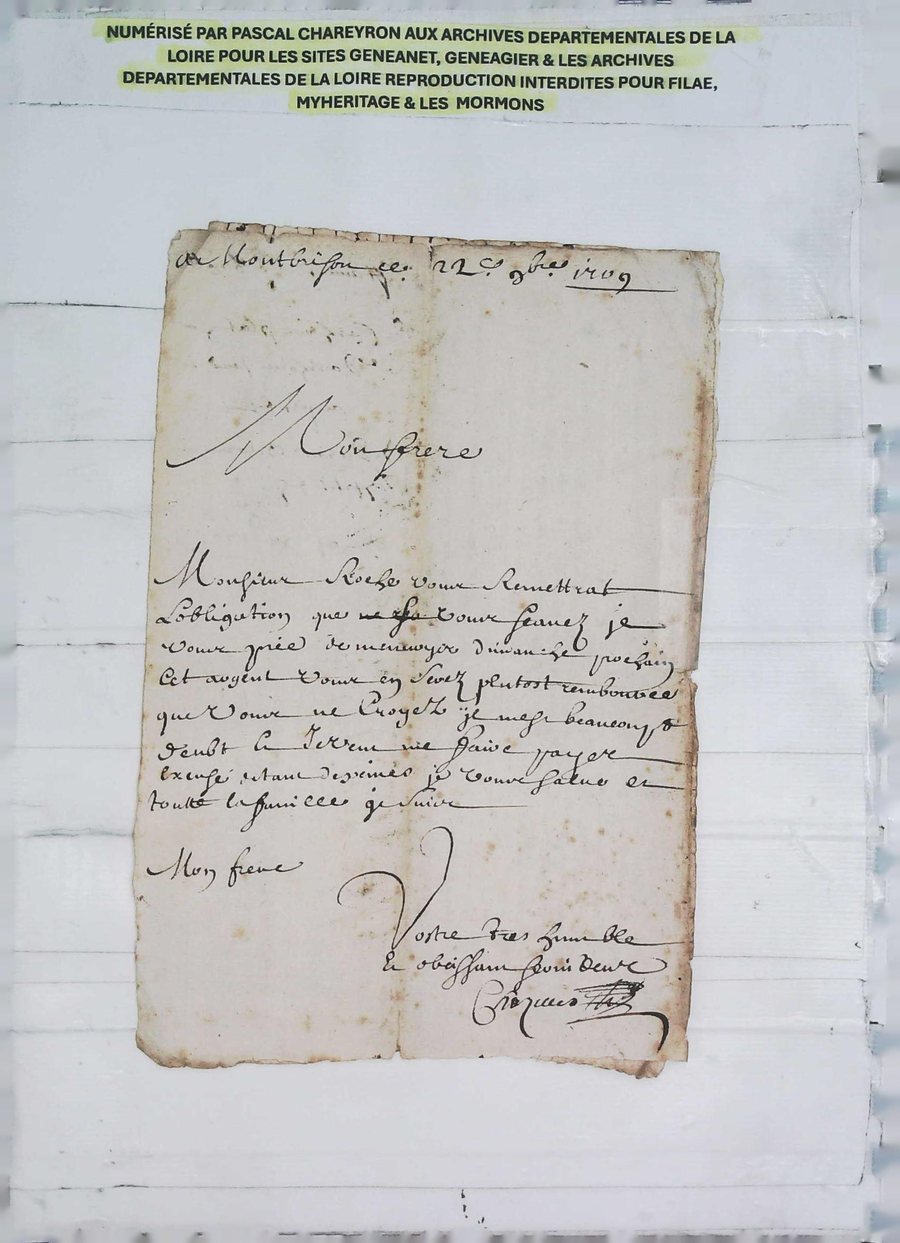 NUMÉRISÉ PAR PASCAL CHAREYRON AUX ARCHIVES DEPARTEMENTALES DE LA
LOIRE POUR LES SITES GENEANET, GENEAGIER & LES ARCHIVES
DEPARTEMENTALES DE LA LOIRE REPRODUCTION INTERDITES POUR FILAE,
MYHERITAGE & LES MORMONS
de Montbrison ce 22e 9bre 1709
Monfrere
Monsieur Roche vous Remettrat
Lobligation que vous scauez je
vous prie de menuoyer dimanche prochain
Cet argent vous en serez plutost rembourcée
que vous ne Croyez je mest beaucoup
deubt me faire payer
Excusé je vous salue et
toutte la famille je suis
Mon frere
Vostre tres humble
Et obeissant seruiteur